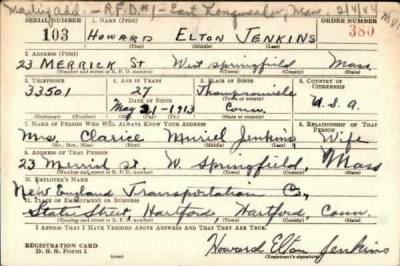 Mailing add. - R.F.D.#1 - East Longmeadow, Mass. 2/4/44
SERIAL NUMBER 1. NAME (Print) ORDER NUMBER
103 HOWARD ELTON JENKINS 380
(First) (Middle) (Last)
2. ADDRESS (Print)
23 MERRICK ST West Springfield Mass.
(Number and street or R. F. D. number) (Town) (County) (State)
3. TELEPHONE 4. AGE IN YEARS 5. PLACE OF BIRTH 6. COUNTRY OF CITIZENSHIP
33501 27 Thompsonville
DATE OF BIRTH
May 31-1913 Conn. U.S.A.
(Exchange) (Number) (Mo.) (Day) (Yr.) (State or country)
7. NAME OF PERSON WHO WILL ALWAYS KNOW YOUR ADDRESS 8. RELATIONSHIP OF THAT PERSON
Mrs. Clarice Muriel Jenkins, Wife
(Mr., Mrs., Miss) (First) (Middle) (Last)
9. ADDRESS OF THAT PERSON
23 Merrick St. W. Springfield, Mass
(Number and street or R. F. D. number) (Town) (County) (State)
10. EMPLOYER'S NAME
New England Transportation Co,
11. PLACE OF EMPLOYMENT OR BUSINESS
State Street, Hartford, Hartford, Conn.
(Number and street or R. F. D. number) (Town) (County) (State)
I AFFIRM THAT I HAVE VERIFIED ABOVE ANSWERS AND THAT THEY ARE TRUE.
REGISTRATION CARD
D. S. S. Form 1
Howard Elton Jenkins
(Registrant's signature)